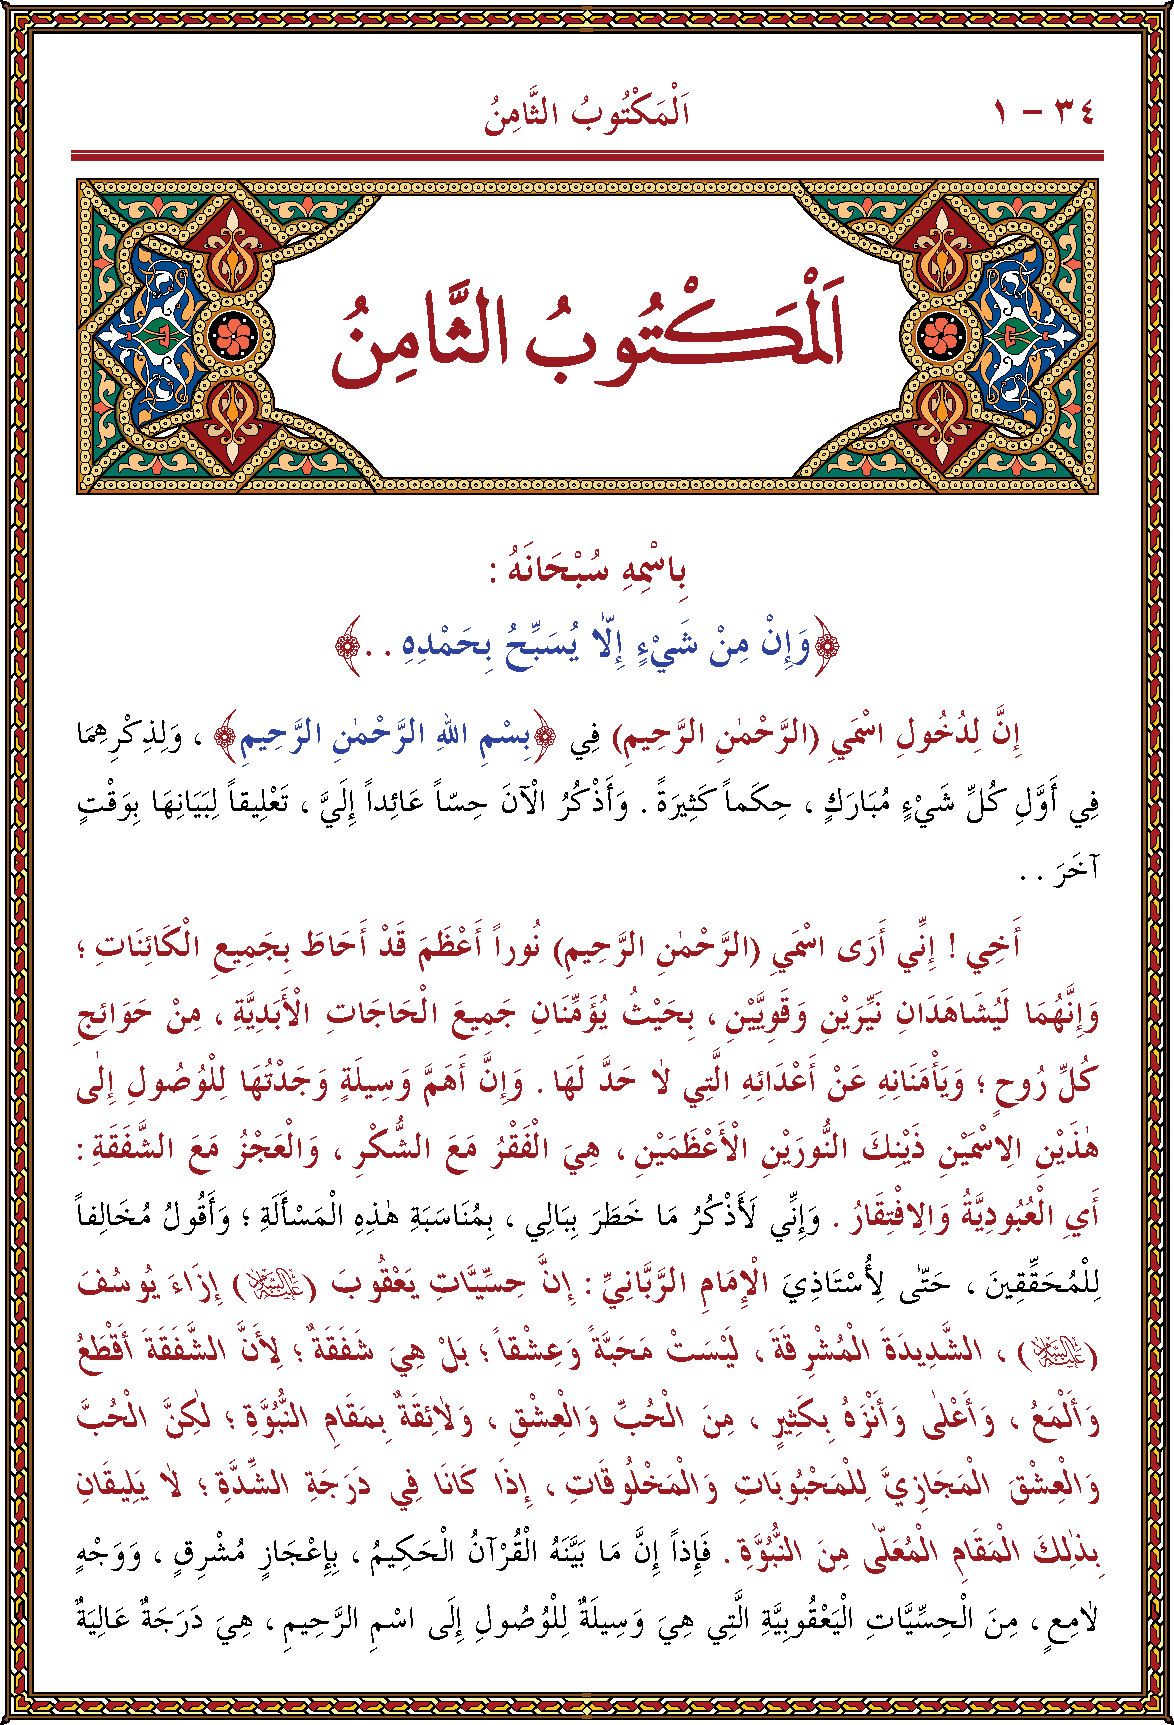 ٣٤ - ١
اَلْمَكْتُوبُ الثَّامِنُ
اَلْمَكْتُوبُ الثَّامِنُ
بِاسْمِهِ سُبْحَانَهُ :
﴿وَإِنْ مِنْ شَيْءٍ إِلَّا يُسَبِّحُ بِحَمْدِهِ . .﴾
إِنَّ لِدُخُولِ اسْمَيِ (الرَّحْمٰنِ الرَّحِيمِ) فِي ﴿بِسْمِ اللهِ الرَّحْمٰنِ الرَّحِيمِ﴾ ، وَلِذِكْرِهِمَا
فِي أَوَّلِ كُلِّ شَيْءٍ مُبَارَكٍ ، حِكَماً كَثِيرَةً . وَأَذْكُرُ الْآنَ حِسّاً عَائِداً إِلَيَّ ، تَعْلِيقاً لِبَيَانِهَا بِوَقْتٍ
آخَرَ . .
أَخِي ! إِنِّي أَرَى اسْمَيِ (الرَّحْمٰنِ الرَّحِيمِ) نُوراً أَعْظَمَ قَدْ أَحَاطَ بِجَمِيعِ الْكَائِنَاتِ ؛
وَإِنَّهُمَا لَيُشَاهَدَانِ نَيِّرَيْنِ وَقَوِيَّيْنِ ، بِحَيْثُ يُؤَمِّنَانِ جَمِيعَ الْحَاجَاتِ الْأَبَدِيَّةِ ، مِنْ حَوَائِجِ
كُلِّ رُوحٍ ؛ وَيَأْمَنَانِهِ عَنْ أَعْدَائِهِ الَّتِي لَا حَدَّ لَهَا . وَإِنَّ أَهَمَّ وَسِيلَةٍ وَجَدْتُهَا لِلْوُصُولِ إِلٰى
هٰذَيْنِ الِاسْمَيْنِ ذَيْنِكَ النُّورَيْنِ الْأَعْظَمَيْنِ ، هِيَ الْفَقْرُ مَعَ الشُّكْرِ ، وَالْعَجْزُ مَعَ الشَّفَقَةِ :
أَيِ الْعُبُودِيَّةُ وَالِافْتِقَارُ . وَإِنِّي لَأَذْكُرُ مَا خَطَرَ بِبَالِي ، بِمُنَاسَبَةِ هٰذِهِ الْمَسْأَلَةِ ؛ وَأَقُولُ مُخَالِفاً
لِلْمُحَقِّقِينَ ، حَتّٰى لِأُسْتَاذِيَ الْإِمَامِ الرَّبَّانِيِّ : إِنَّ حِسِّيَّاتِ يَعْقُوبَ (عليه السلام) إِزَاءَ يُوسُفَ
(عليه السلام) ، الشَّدِيدَةَ الْمُشْرِقَةَ ، لَيْسَتْ مَحَبَّةً وَعِشْقاً ؛ بَلْ هِيَ شَفَقَةٌ ؛ لِأَنَّ الشَّفَقَةَ أَقْطَعُ
وَأَلْمَعُ ، وَأَعْلٰى وَأَنْزَهُ بِكَثِيرٍ ، مِنَ الْحُبِّ وَالْعِشْقِ ، وَلَائِقَةٌ بِمَقَامِ النُّبُوَّةِ ؛ لٰكِنَّ الْحُبَّ
وَالْعِشْقَ الْمَجَازِيَّ لِلْمَحْبُوبَاتِ وَالْمَخْلُوقَاتِ ، إِذَا كَانَا فِي دَرَجَةِ الشِّدَّةِ ؛ لَا يَلِيقَانِ
بِذٰلِكَ الْمَقَامِ الْمُعَلّٰى مِنَ النُّبُوَّةِ . فَإِذاً إِنَّ مَا بَيَّنَهُ الْقُرْآنُ الْحَكِيمُ ، بِإِعْجَازٍ مُشْرِقٍ ، وَوَجْهٍ
لَامِعٍ ، مِنَ الْحِسِّيَّاتِ الْيَعْقُوبِيَّةِ الَّتِي هِيَ وَسِيلَةٌ لِلْوُصُولِ إِلَى اسْمِ الرَّحِيمِ ، هِيَ دَرَجَةٌ عَالِيَةٌ